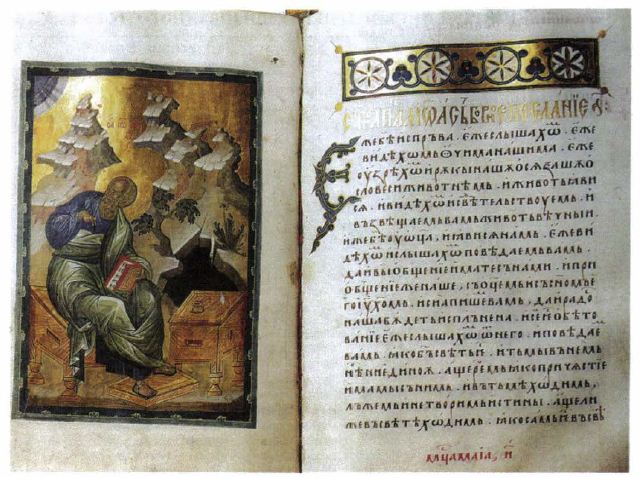 же бѣ испръва . еже слышахѡⷨ . еже
видѣхѡмь ѻчима нашима . еже
ѹзрѣхѡⷨ и рѫкы нашѫ осѧзашѫ ѡ
словеси животнѣмь . и животь ꙗви
сѧ . и видѣхѡⷨ и свѣтельствоуемь . и
възвѣщаемь вамь животь вѣчныи
иже бѣ оу ѡц҃а . и ꙗвисѧ намь . еже ви
дѣхѡⷨ и слышахѡⷨ повѣдаемь вамь .
да и вы общенїе имате съ нами . и при
общенїе же наше , съ ѡц҃емь и съ сн҃омь е
го і҃у х҃омь . и сїа пишѫ вамь , да и радо
наша бѫдеть исплънена . и се е҃ ѻбѣто
ванїе еже слышахѡⷨ ѿ него . и повѣдае
вамь . ꙗко б҃ъ свѣть е҃ . и тьмы въ немь
нѣ ни единоѫ . аще речемь ꙗко причѧстїе
имамы съ нимь . и въ тьмѣ ходимь ,
лъжемь и не творимь истины . аще ли
же въ свѣтѣ ходимь . ꙗко самь е҃ въ свѣ
мⷭ҇ца маіа , и҃